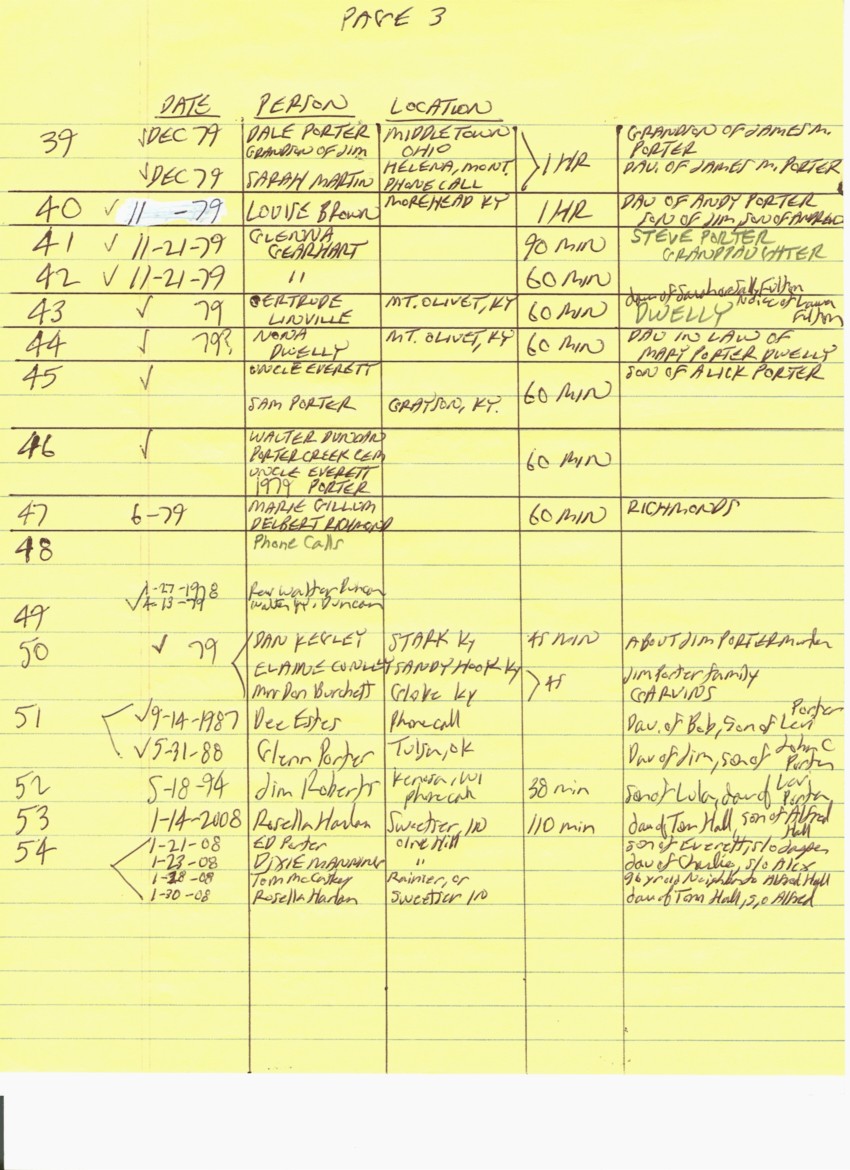 PAGE 3
DATE PERSON LOCATION
39 √DEC 79 DALE PORTER MIDDLETOWN GRANDSON OF JAMES M.
GRANDSON OF JIM OHIO PORTER
1 HR
√DEC 79 SARAH MARTIN HELENA, MONT. DAU. OF JAMES M. PORTER
PHONE CALL
40 √ 11 -79 LOUISE BROWN MOREHEAD KY 1 HR DAU OF ANDY PORTER
SON OF JIM, SON OF ANDREW
41 √ 11-21-79 GLENNA 90 MIN STEVE PORTER
GEARHART GRANDDAUGHTER
42 √ 11-21-79 " 60 MIN
43 √ 79 GERTRUDE MT. OLIVET, KY 60 MIN dau of Fulton
LINVILLE DWELLY Niece of Fulton
44 √ 79? NONA MT. OLIVET, KY 60 MIN DAU IN LAW OF
DWELLY MARY PORTER DWELLY
45 √ UNCLE EVERETT 60 MIN SON OF ALICK PORTER
SAM PORTER GRAYSON, KY.
46 √ WALTER DUNCAN 60 MIN
PORTER CREEK CEM
UNCLE EVERETT
1979 PORTER
47 6-79 MARIE GILLUM 60 MIN RICHMONDS
DELBERT RICHMOND
48 Phone Calls
1-27-1978 Rev Walter Duncan
49 √4-13-79 Walter Duncan
50 √ 79 DAN KEGLEY STARK KY 45 MIN ABOUT JIM PORTER murder
ELAINE CONLEY SANDY HOOK KY 45 Jim Porter family
Mrs Don Burchett Globe Ky GARVINS
51 √9-14-1987 Dee Estes Phone call Dau. of Bob, Son of Levi Porter
√5-31-88 Glenn Porter Tulsa, OK Dau of Jim, son of John C Porter
52 5-18-94 Jim Roberts , WI 38 min son of Lula, dau of Levi Porter
phone call
53 1-14-2008 Rosella Harlan Sweetser, IN 110 min dau of Tom Hall, son of Alfred Hall
54 1-21-08 ED Porter Olive Hill son of Everett, s/o Jasper
1-23-08 DIXIE MANNING " dau of Charlie, s/o Alex
1-28-08 Tom McCoskey Rainier, or 96 yr old Neighbor to Alfred Hall
1-30-08 Rosella Harlan Sweetser IN dau of Tom Hall, s/o Alfred